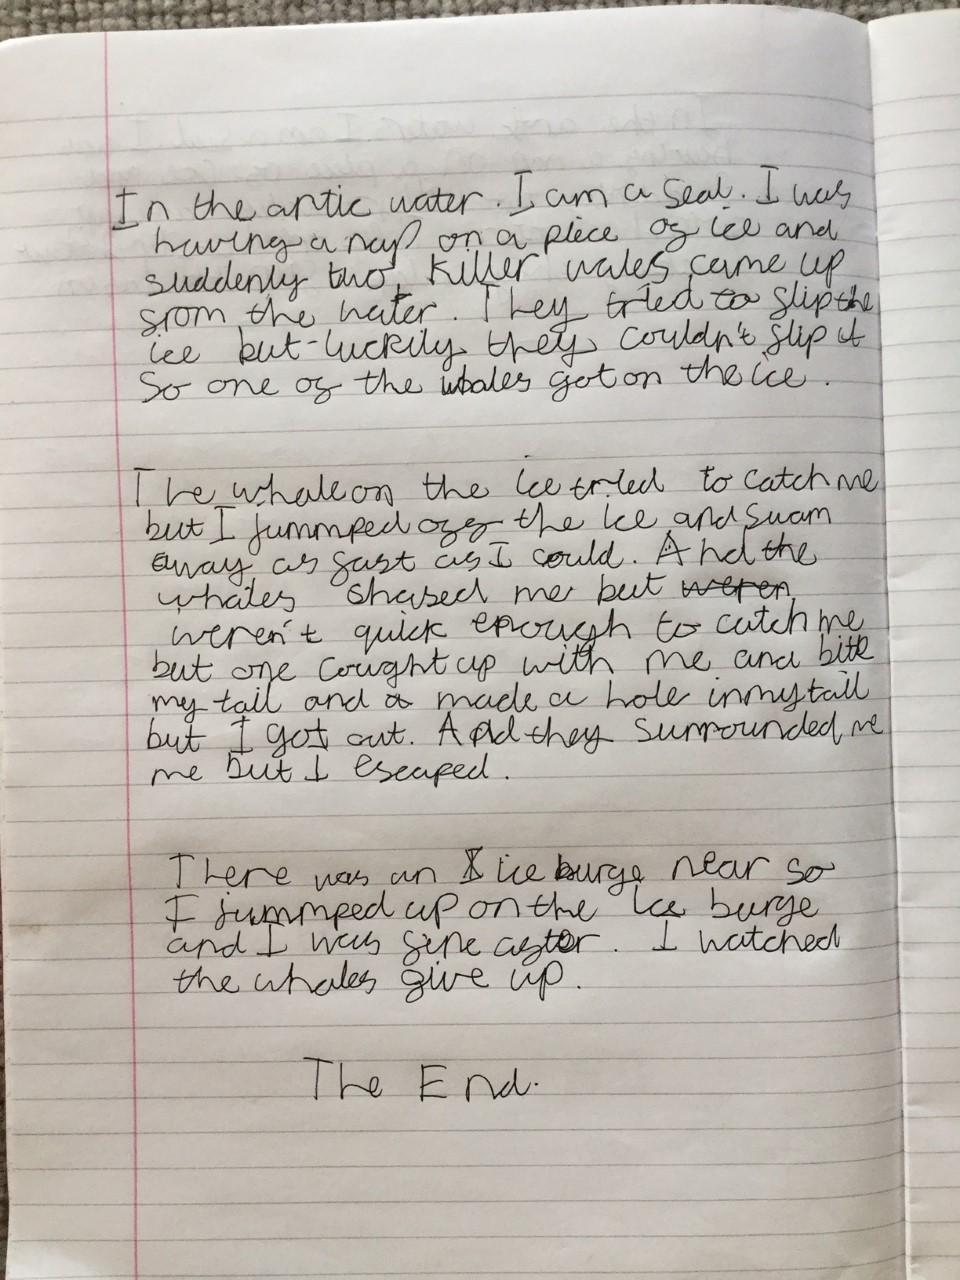 In the artic water. I am a seal. I was
having a nap on a piece of ice and
suddenly two killer wales came up
from the water. They tried to flip the
ice but luckily they couldn't flip it
So one of the whales got on the ice.
The whale on the ice tried to catch me
but I jummped off the ice and swam
away as fast as I could. And the
whales shased me but weren
weren't quick enough to catch me
but one cought up with me and bite
my tail and a made a hole in my tail
but I got out. And they surrounded me
me but I escaped.
There was an I ice burge near so
I jummped up on the ice burge
and I was fine after. I watched
the whales give up.
The End.